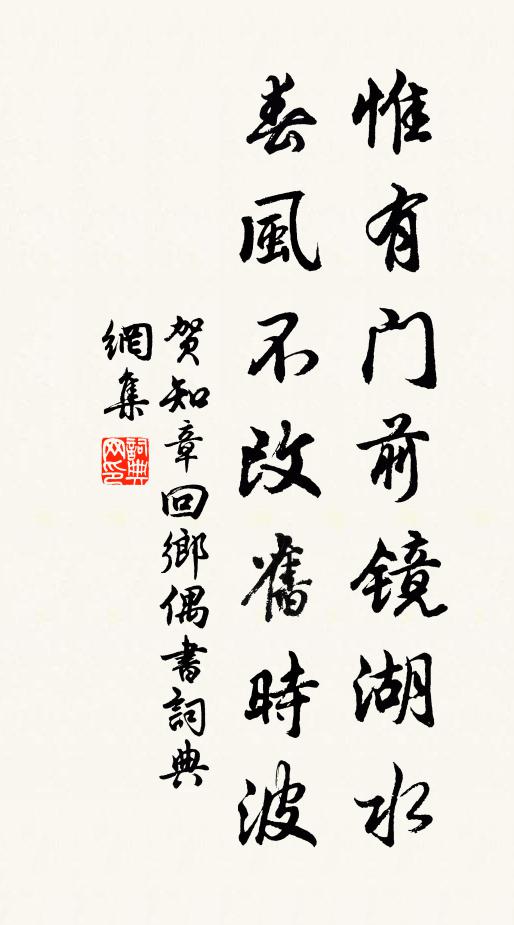 惟有门前镜湖水
春風不改舊時波
贺知章回鄉偶書詞典
網集
詞典
网印